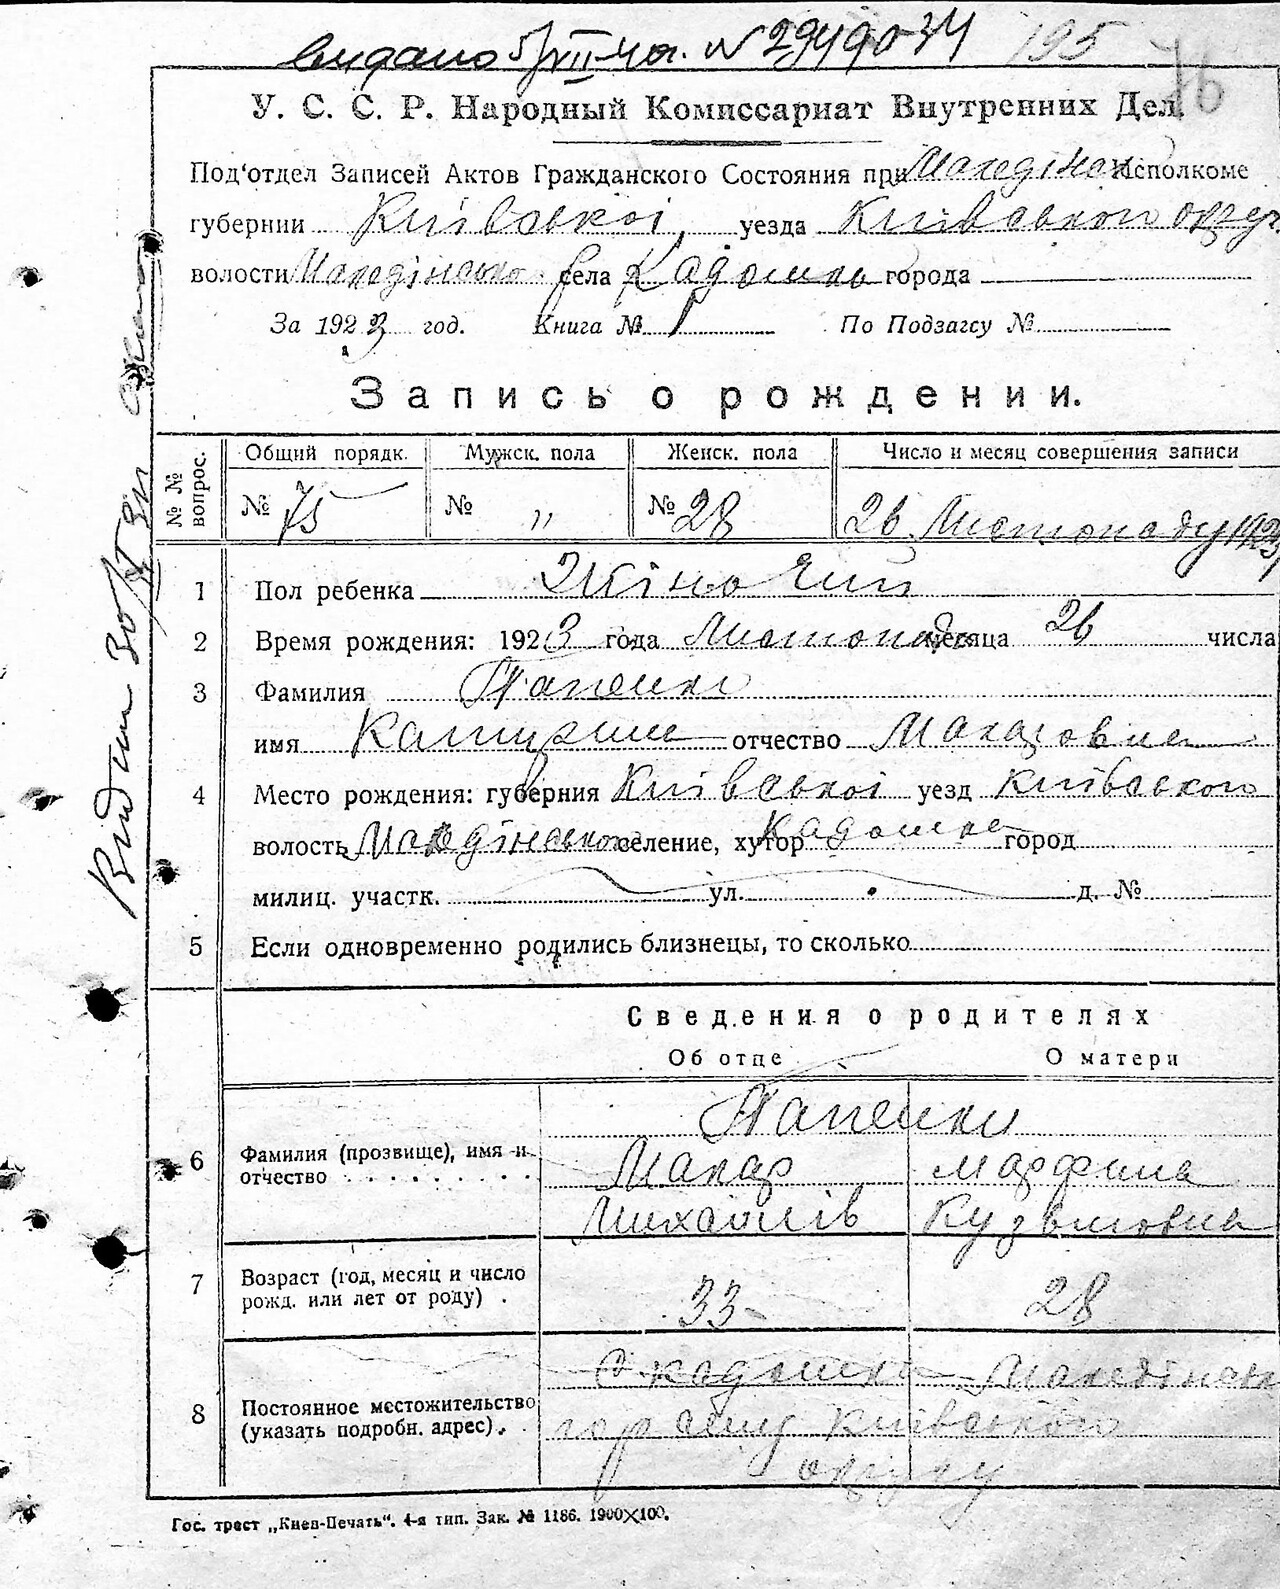 видано 5/VII-41. N 2949034 195
76
У. С. С. Р. Народный Комиссариат Внутренних Дел.
Под‘отдел Записей Актов Гражданского Состояния при Македінск Исполкоме
губернии Київської, уезда Київського округ.
волости Македінсько села Кадомка города
За 1923 год. Книга № 1 По Подзагсу №
Запись о рождении.
№№ вопрос. Общий порядк. Мужск. пола Женск. пола Число и месяц совершения записи
№ 75 № „ № 28 26 Листопаду 1923
1 Пол ребенка Жіночий
2 Время рождения: 1923 года Листопада месяца 26 числа
3 Фамилия Папенко
имя Катерина отчество Макаровна
4 Место рождения: губерния Київської уезд Київського
волость Македінсько селение, хутор Кадомка город
милиц. участк. ул. д. №
5 Если одновременно родились близнецы, то сколько
Сведения о родителях
Об отце О матери
Папенки
6 Фамилия (прозвище), имя и отчество
Макар Марфина
Михайлів Кузьмовна
7 Возраст (год, месяц и число рожд. или лет от роду)
33 28
8 Постоянное местожительство (указать подробн. адрес)
С Кадомка Македінськ
Київського
округу
Гос. трест „Киев-Печать“. 4-я тип. Зак. № 1186. 1900×100.